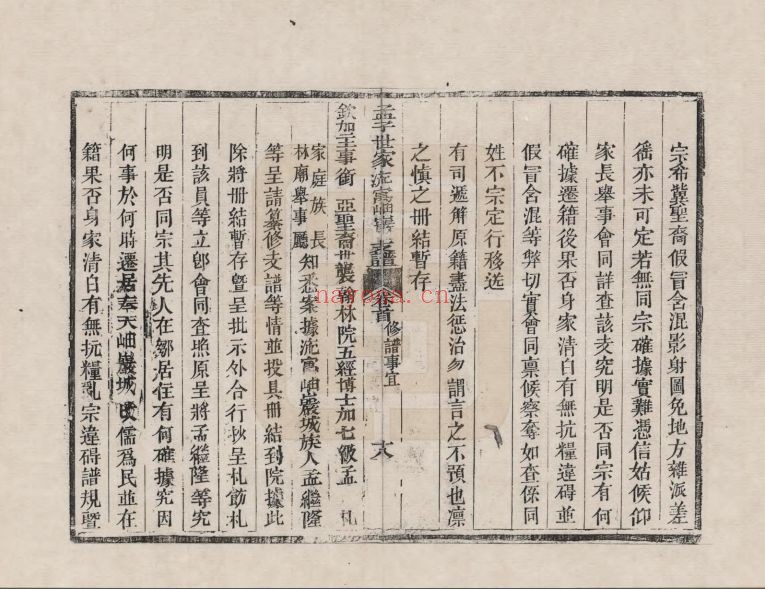 宗希冀聖裔假冒含混影射圖免地方雜派差
徭亦未可定若無同宗確據實難憑信姑候仰
家長舉事會同詳查該支究明是否同宗有何
確據遷籍後果否身家清白有無抗糧違碍並
假冒含混等弊切實會同稟候察奪如查係同
姓不宗定行移送
有司遞解原籍盡法懲治勿謂言之不預也凜
之慎之冊結暫存
孟子世家流寓岫巖支譜 卷首 修譜事宜 十八
欽加主事銜 亞聖裔世襲翰林院五經博士加七級孟 札
家庭族長
林廟舉事廳
知悉案據流寓岫巖城族人孟繼隆
等呈請纂修支譜等情並投具冊結到院據此
除將冊結暫存暨呈批示外合行抄呈札飭札
到該員等立卽會同查照原呈將孟繼隆等究
明是否同宗其先人在鄒居住有何確據究因
何事於何時遷居奉天岫巖城 儒爲民並在
籍果否身家清白有無抗糧亂宗違碍譜規暨
nayana.cn